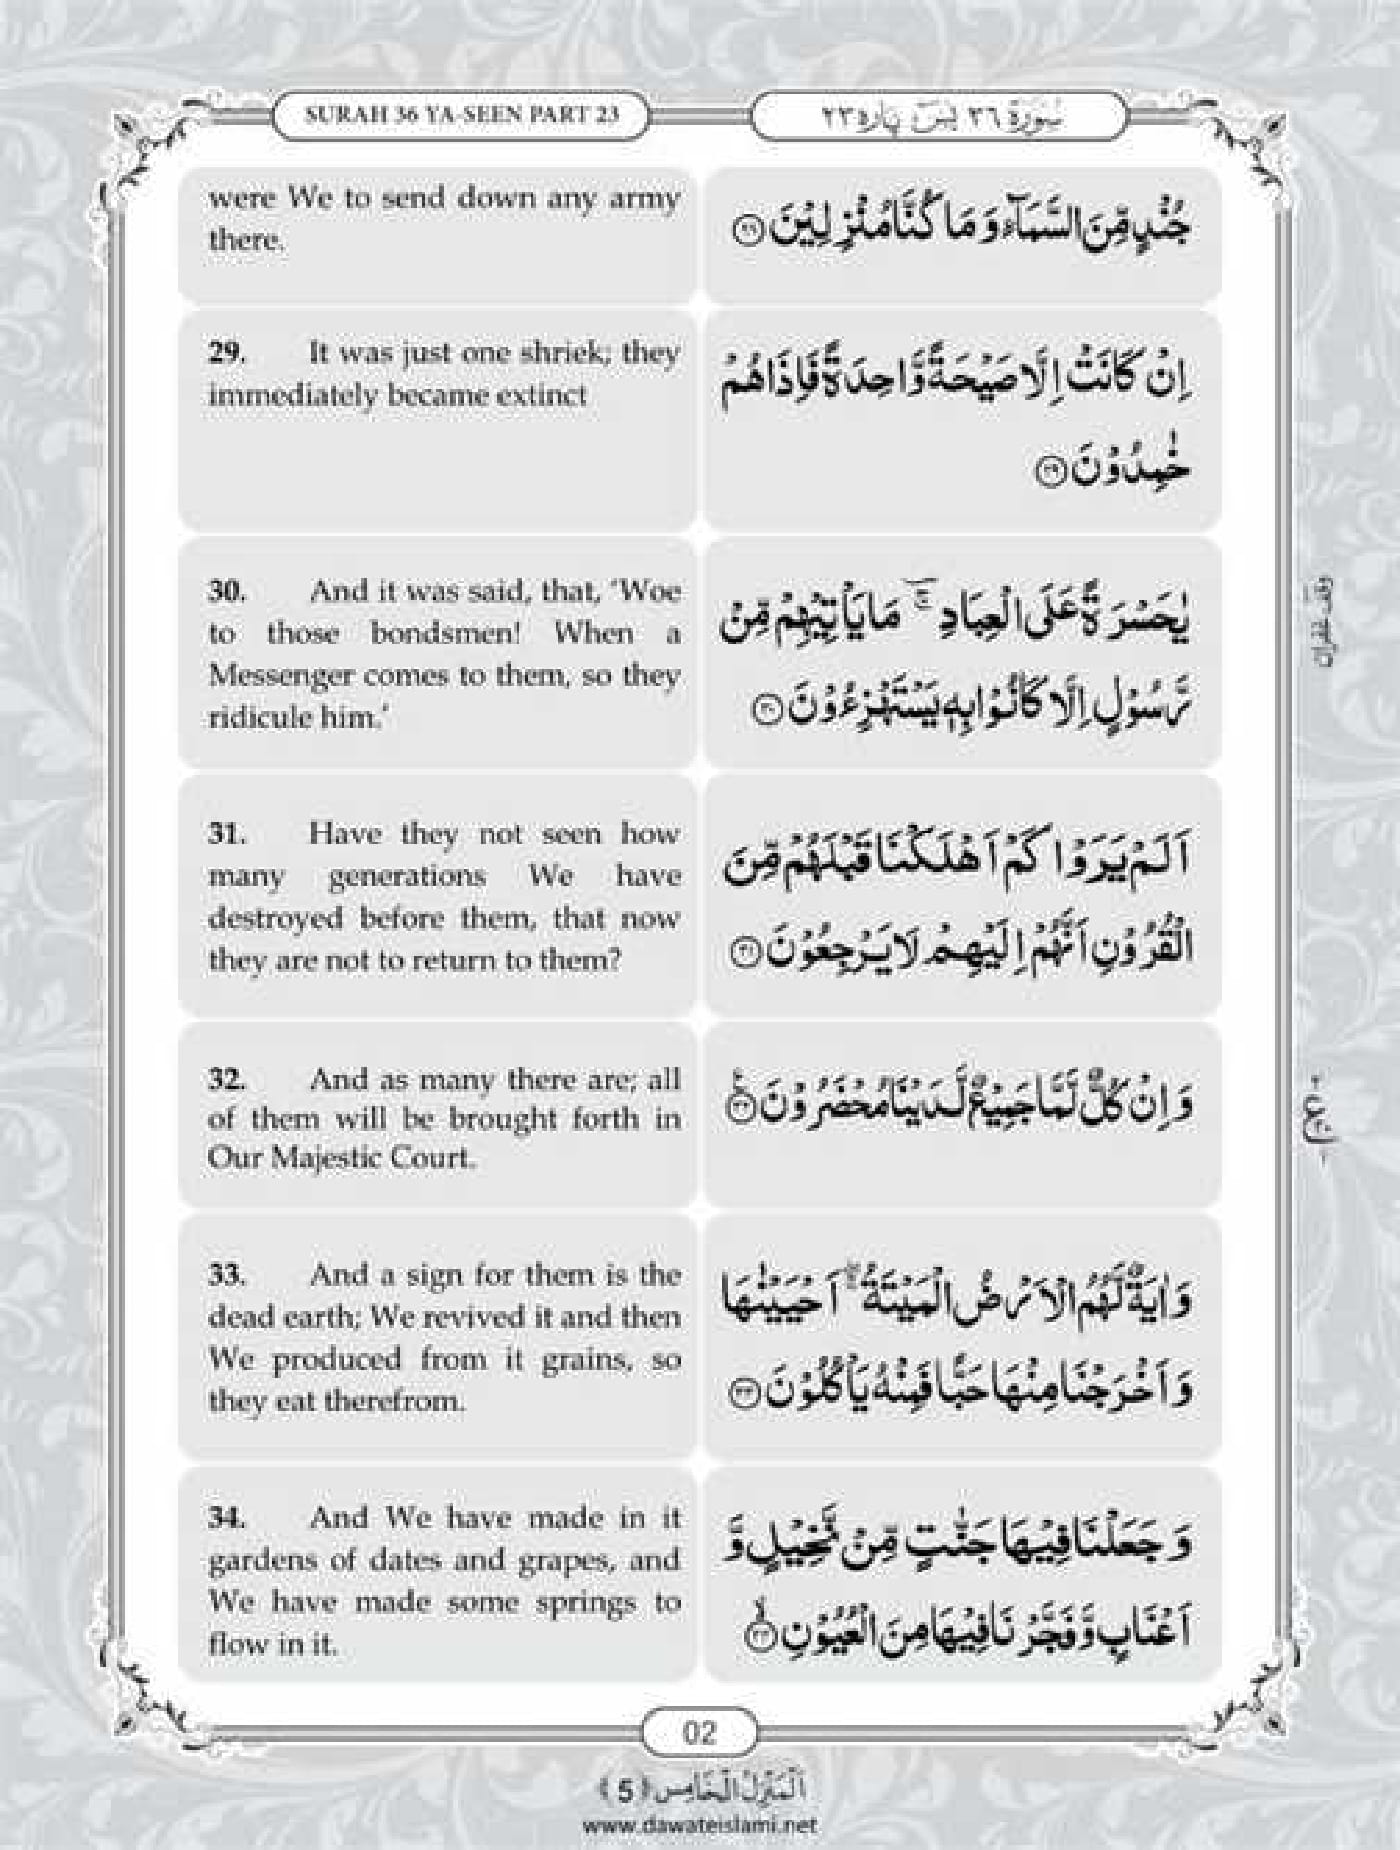 SURAH 36 YA-SEEN PART 23
سُوْرَةُ ٣٦ يٰسٓ پارہ ٢٣
were We to send down any army
there.
جُنْدٍ مِّنَ السَّمَآءِ وَ مَا كُنَّا مُنْزِلِيْنَ ﴿۲۸﴾
29. It was just one shriek; they
immediately became extinct
اِنْ كَانَتْ اِلَّا صَيْحَةً وَّاحِدَةً فَاِذَا هُمْ
خٰمِدُوْنَ ﴿۲۹﴾
30. And it was said, that, ‘Woe
to those bondsmen! When a
Messenger comes to them, so they
ridicule him.‘
يٰحَسْرَةً عَلَى الْعِبَادِ ۚ مَا يَاْتِيْهِمْ مِّنْ
رَّسُوْلٍ اِلَّا كَانُوْا بِهٖ يَسْتَهْزِءُوْنَ ﴿۳۰﴾
وقف غفران
31. Have they not seen how
many generations We have
destroyed before them, that now
they are not to return to them?
اَلَمْ يَرَوْا كَمْ اَهْلَكْنَا قَبْلَهُمْ مِّنَ
الْقُرُوْنِ اَنَّهُمْ اِلَيْهِمْ لَا يَرْجِعُوْنَ ﴿۳۱﴾
32. And as many there are; all
of them will be brought forth in
Our Majestic Court.
وَ اِنْ كُلٌّ لَّمَّا جَمِيْعٌ لَّدَيْنَا مُحْضَرُوْنَ ﴿۳۲﴾
33. And a sign for them is the
dead earth; We revived it and then
We produced from it grains, so
they eat therefrom.
وَ اٰيَةٌ لَّهُمُ الْاَرْضُ الْمَيْتَةُ ۚۖ اَحْيَيْنٰهَا
وَ اَخْرَجْنَا مِنْهَا حَبًّا فَمِنْهُ يَاْكُلُوْنَ ﴿۳۳﴾
34. And We have made in it
gardens of dates and grapes, and
We have made some springs to
flow in it.
وَ جَعَلْنَا فِيْهَا جَنّٰتٍ مِّنْ نَّخِيْلٍ وَّ
اَعْنَابٍ وَّ فَجَّرْنَا فِيْهَا مِنَ الْعُيُوْنِ ﴿۳۴﴾
02
اَلْمَنْزِلُ الْخَامِس ﴿5﴾
www.dawateislami.net